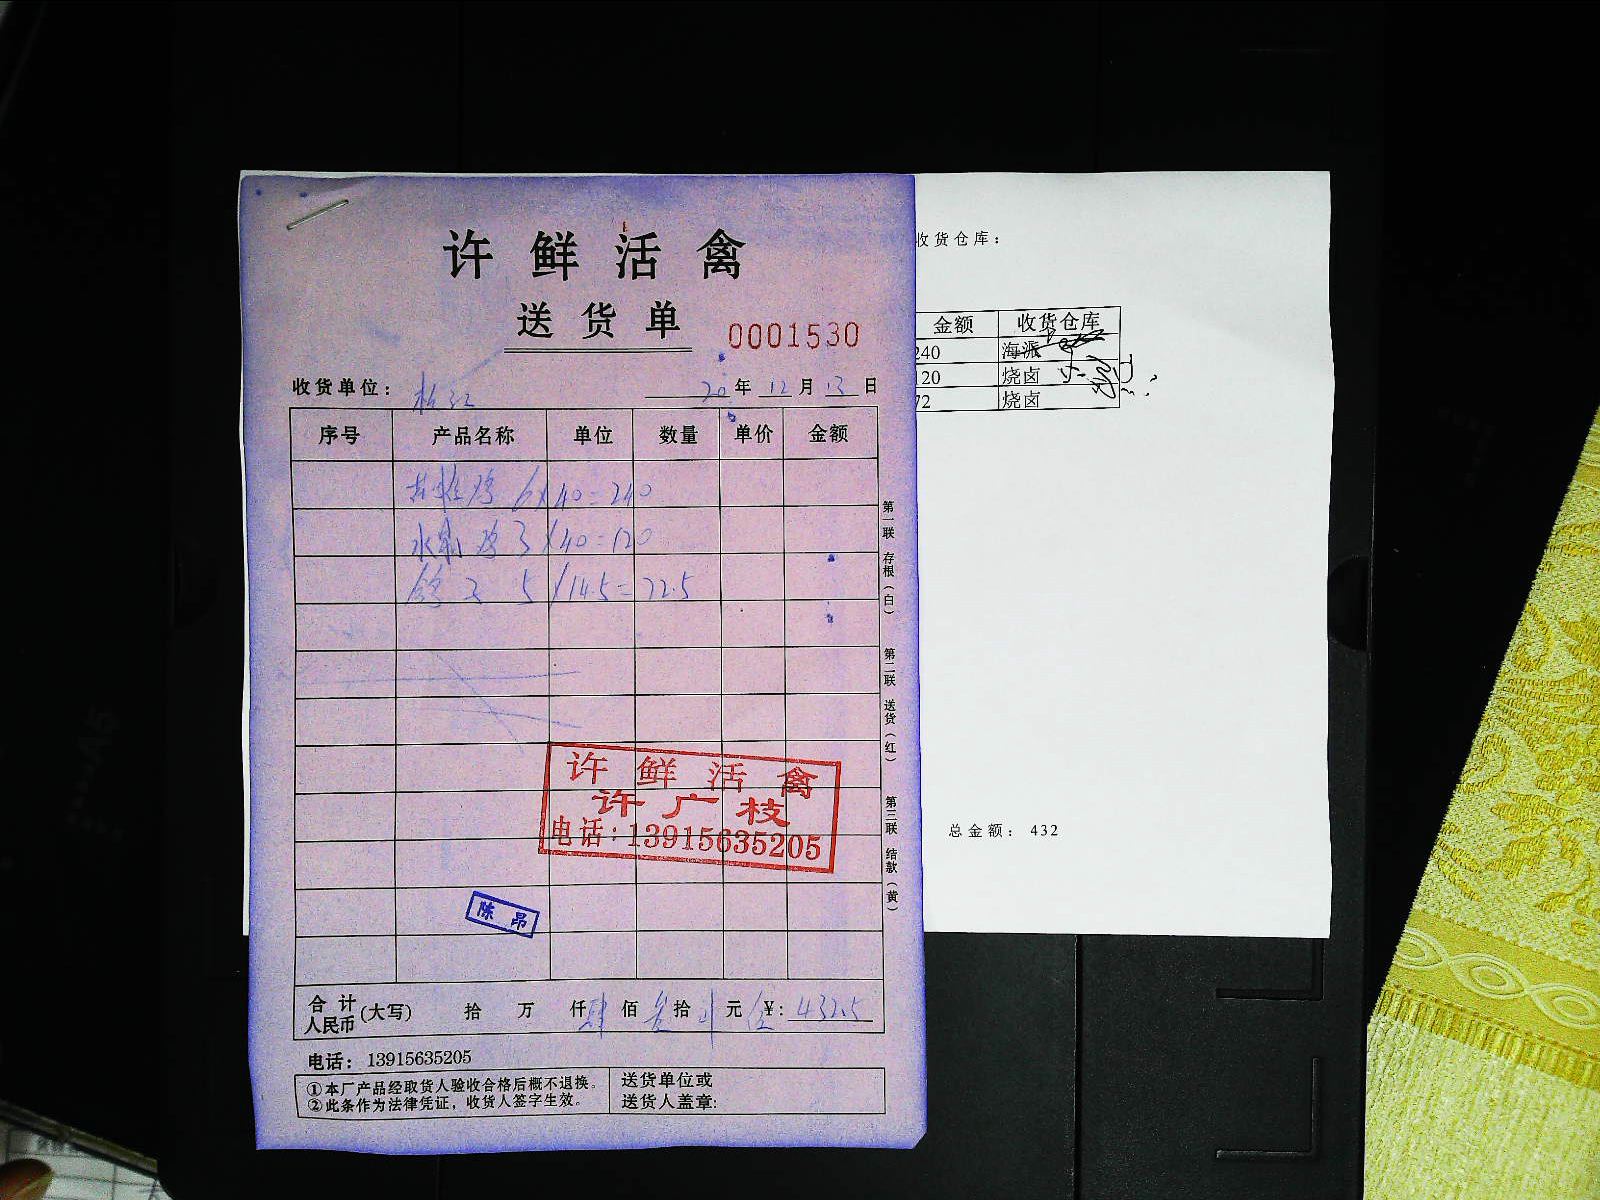 许鲜活禽
送货单
0001530
收货单位：
20年12月13日
序号 产品名称 单位 数量 单价 金额
鸡 6×40=240
鸡 3×40=120
5×14.5=72.5
第一联 存根（白） 第二联 送货（红） 第三联 结款（黄）
许鲜活禽
许广枝
电话：13915635205
陈昂
合计人民币（大写） 拾 万 仟肆佰叁拾 元 ¥：432.5
电话：13915635205
①本厂产品经取货人验收合格后概不退换。
②此条作为法律凭证，收货人签字生效。
送货单位或
送货人盖章：
收货仓库：
金额 收货仓库
240 海派
120 烧卤
72 烧卤
总金额：432